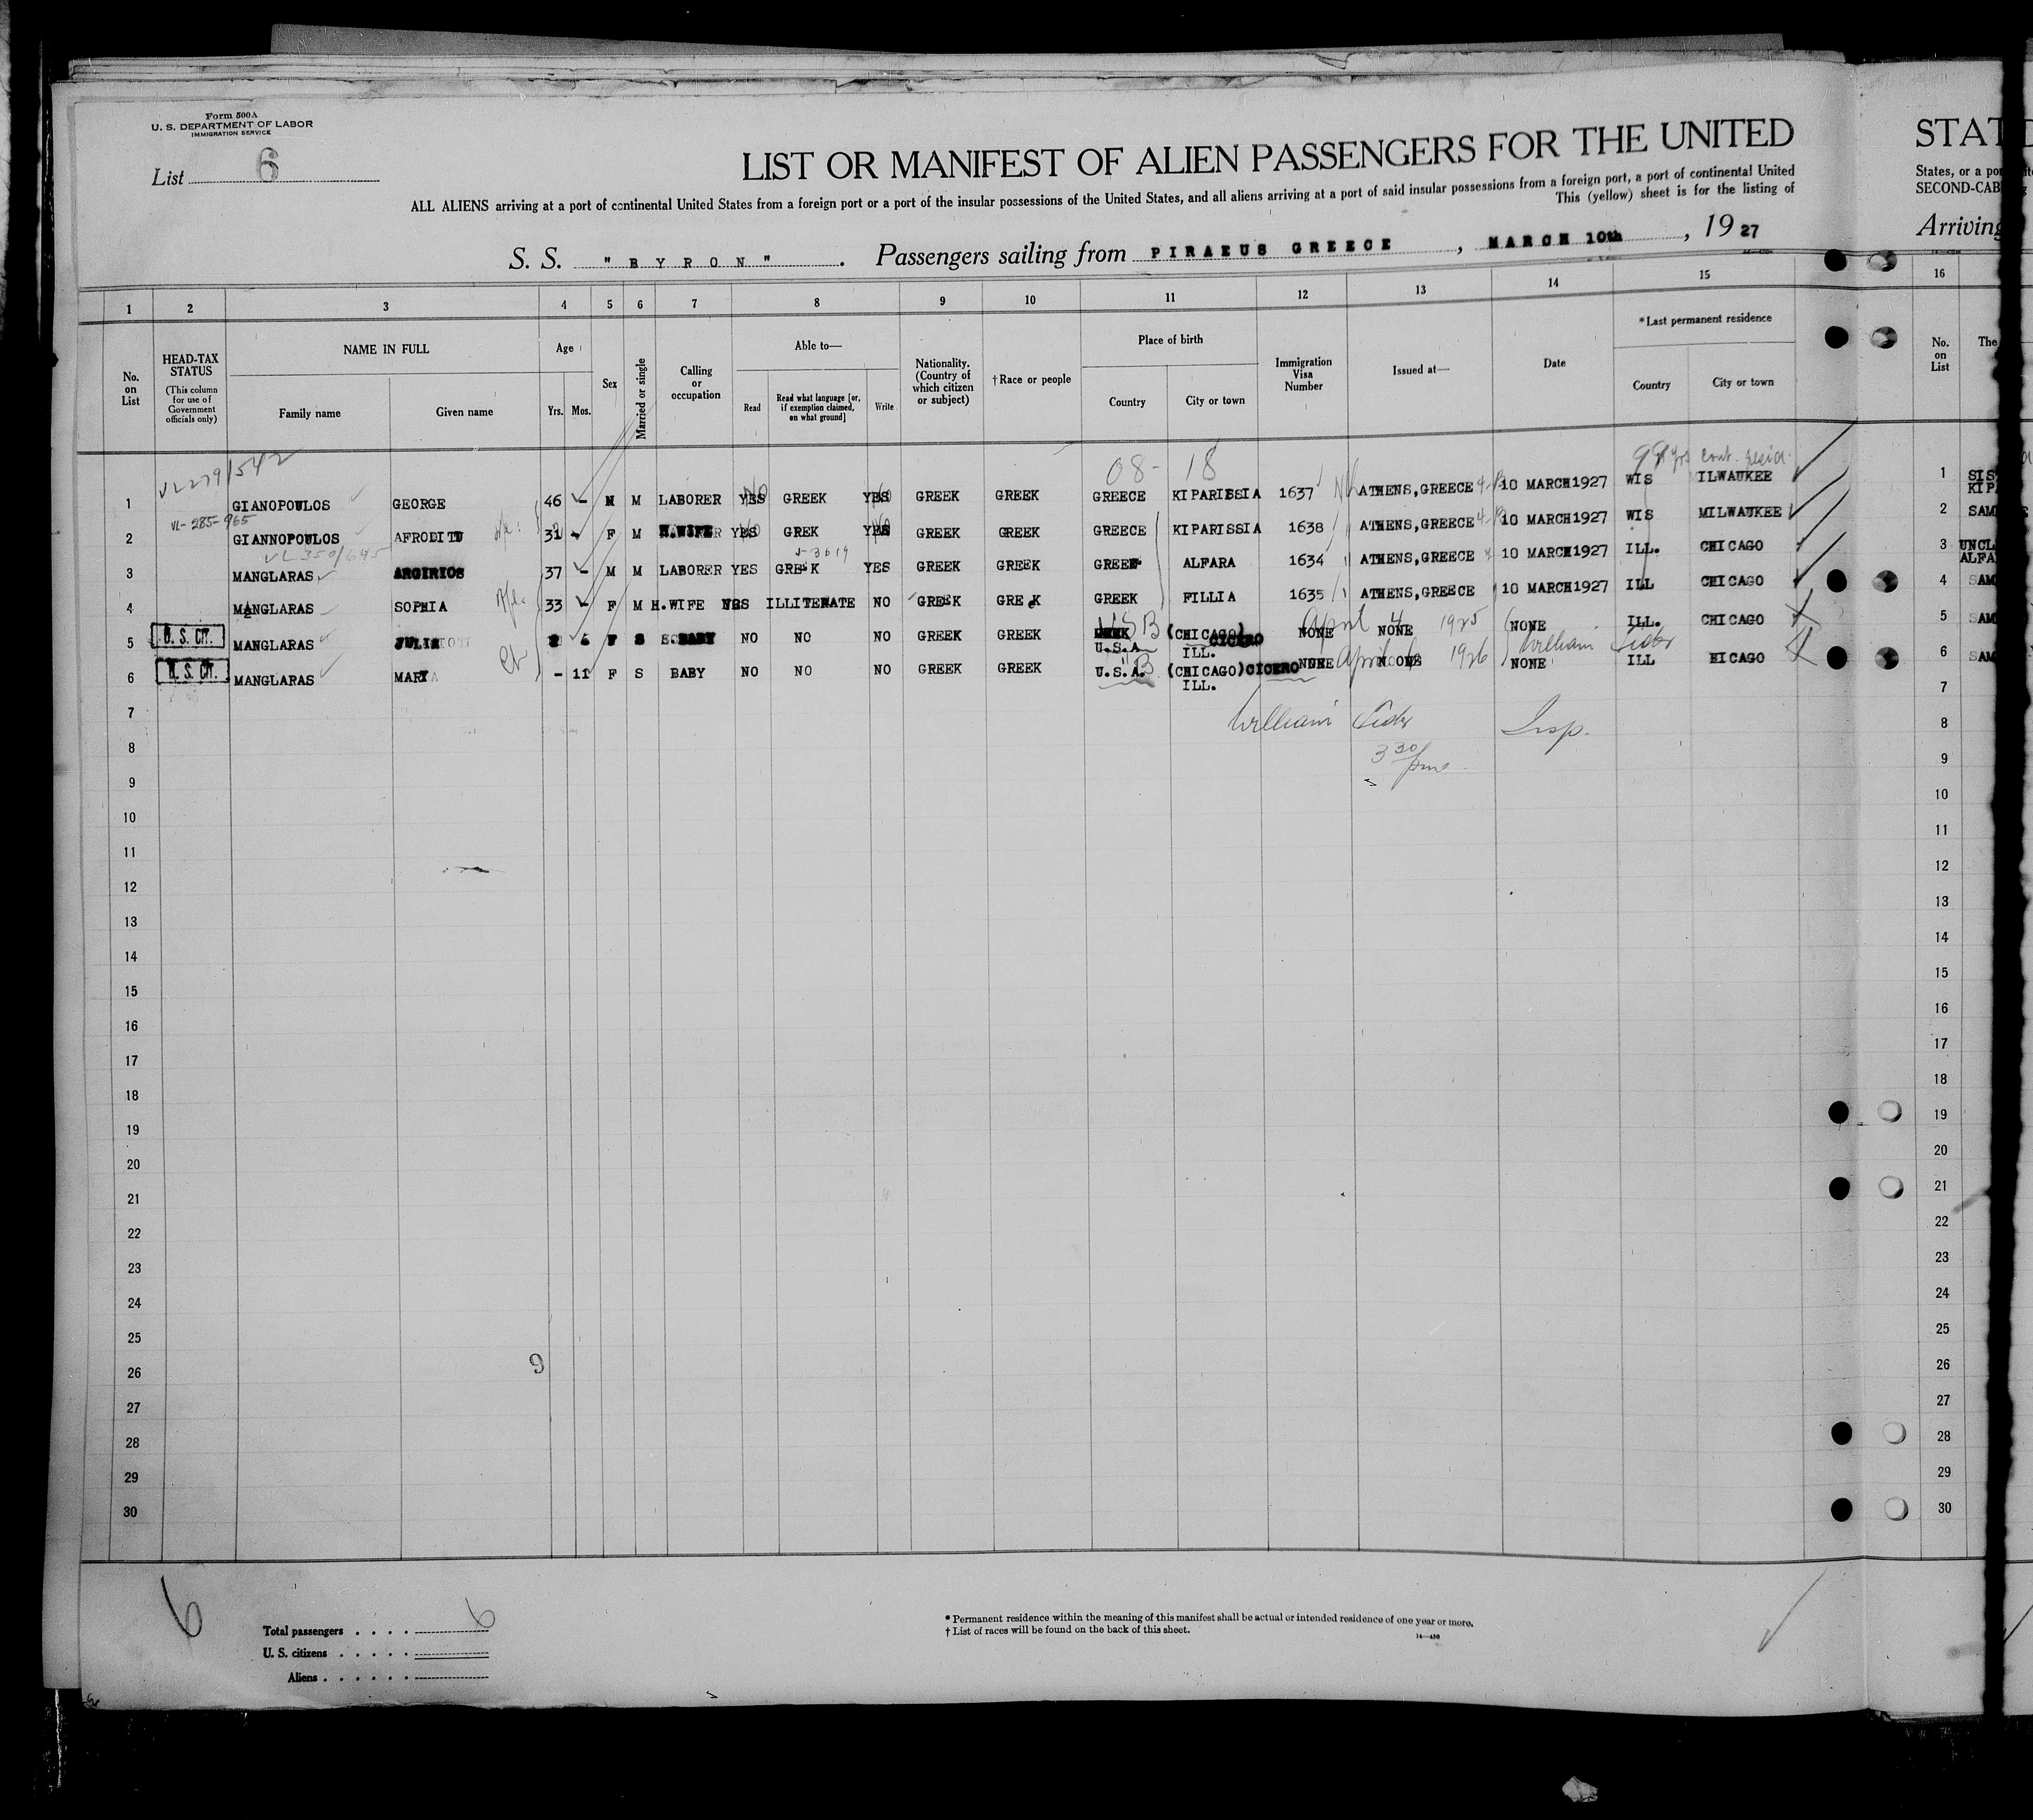 Form 500A
U. S. DEPARTMENT OF LABOR
IMMIGRATION SERVICE
List 6
LIST OR MANIFEST OF ALIEN PASSENGERS FOR THE UNITED
ALL ALIENS arriving at a port of continental United States from a foreign port or a port of the insular possessions of the United States, and all aliens arriving at a port of said insular possessions from a foreign port, a port of continental United
This (yellow) sheet is for the listing of
S. S. "BYRON". Passengers sailing from PIRAEUS GREECE, MARCH 10th, 1927
1 2 3 4 5 6 7 8 9 10 11 12 13 14 15
No. on List
HEAD-TAX STATUS
(This column for use of Government officials only)
NAME IN FULL
Family name Given name
Age
Yrs. Mos.
Sex
Married or single
Calling or occupation
Able to—
Read
Read what language [or, if exemption claimed, on what ground]
Write
Nationality. (Country of which citizen or subject)
†Race or people
Place of birth
Country City or town
Immigration Visa Number
Issued at—
Date
*Last permanent residence
Country City or town
VL 279/542
08- 18
yrs cont.
1 GIANOPOULOS GEORGE 46 - M M LABORER YES NO GREEK YES NO GREEK GREEK GREECE KIPARISSIA 1637 ATHENS,GREECE 10 MARCH 1927 WIS ILWAUKEE
VL-285-965
2 GIANNOPOULOS AFRODITU 31 - F M H.WIFE YES NO GREK YES NO GREEK GREEK GREECE KIPARISSIA 1638 ATHENS,GREECE 10 MARCH 1927 WIS MILWAUKEE
VL 350/645
3 MANGLARAS ARGIRIOS 37 - M M LABORER YES GREEK YES GREEK GREEK GREEK ALFARA 1634 ATHENS,GREECE 10 MARCH 1927 ILL. CHICAGO
4 MANGLARAS SOPHIA 33 - F M H.WIFE ILLITERATE NO GREEK GREEK GREEK FILLIA 1635 ATHENS,GREECE 10 MARCH 1927 ILL CHICAGO
U. S. CIT.
5 MANGLARAS JULIA F S BABY NO NO NO GREEK GREEK USB U.S.A. (CHICAGO) CICERO ILL. NONE April 4 NONE 1925 NONE ILL. CHICAGO
U. S. CIT.
6 MANGLARAS MARY - 11 F S BABY NO NO NO GREEK GREEK U.S.A. (CHICAGO) CICERO ILL. NONE April 1926 NONE William ILL HICAGO
William
Insp.
3 30 pm
7
8
9
10
11
12
13
14
15
16
17
18
19
20
21
22
23
24
25
26
27
28
29
30
9
6
Total passengers . . . . 6
U. S. citizens . . . . .
Aliens . . . . . .
* Permanent residence within the meaning of this manifest shall be actual or intended residence of one year or more.
† List of races will be found on the back of this sheet.
STAT
States, or a por
SECOND-CAB
Arriving
16
No. on List
The
1 SIS
KIP
2 SAM
3 UNCL
ALFA
4 SAM
5 SAM
6 SAM
7
8
9
10
11
12
13
14
15
16
17
18
19
20
21
22
23
24
25
26
27
28
29
30